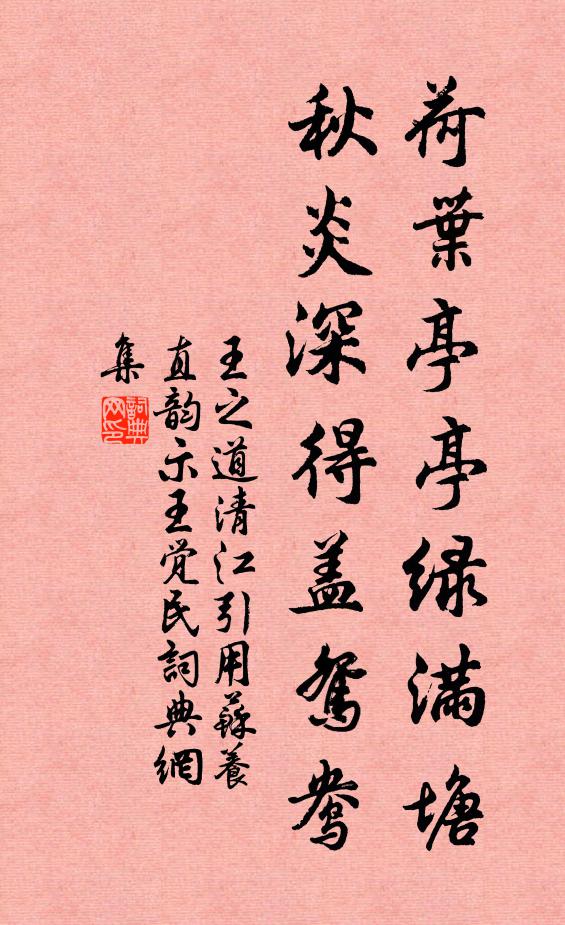 荷葉亭亭緑滿塘
秋炎深得盖鴛鴦
王之道清江引用蘇養
直韵示王覚民詞典網
集
詞典
网印